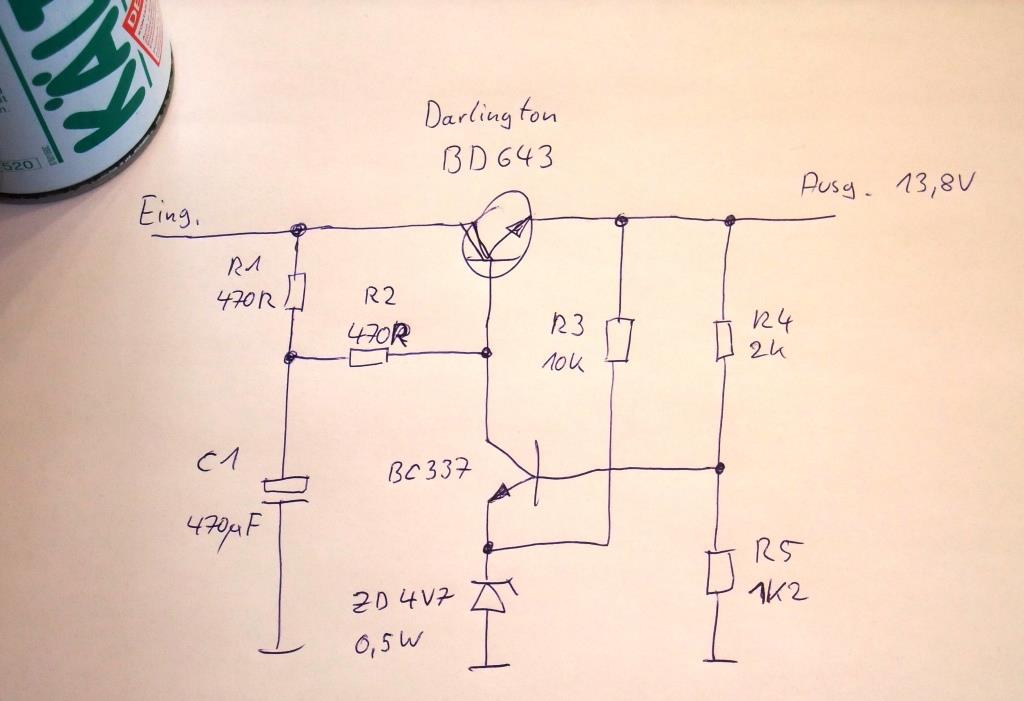 KÄLT
520
Darlington
BD643
Ausg. 13,8V
Eing.
R1
470R
R2
470R
R3
10K
R4
2K
C1
470µF
BC337
ZD 4V7
0,5W
R5
1K2